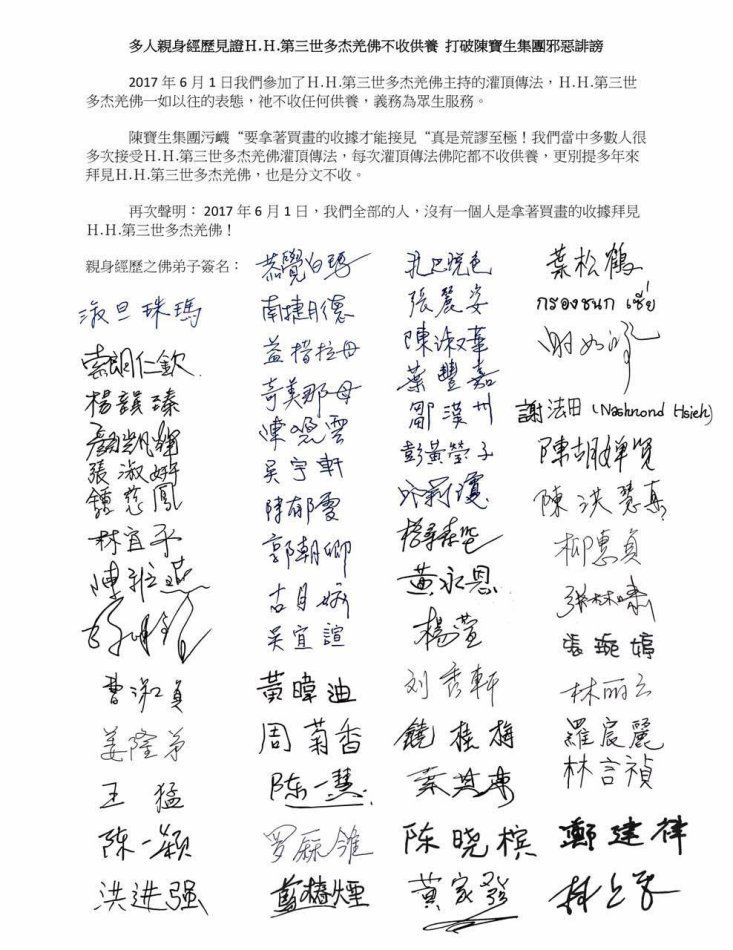 多人親身經歷見證H.H.第三世多杰羌佛不收供養 打破陳寶生集團邪惡誹謗
2017 年 6 月 1 日我們參加了H.H.第三世多杰羌佛主持的灌頂傳法，H.H.第三世
多杰羌佛一如以往的表態，祂不收任何供養，義務為眾生服務。
陳寶生集團污衊“要拿著買畫的收據才能接見“真是荒謬至極！我們當中多數人很
多次接受H.H.第三世多杰羌佛灌頂傳法，每次灌頂傳法佛陀都不收供養，更別提多年來
拜見H.H.第三世多杰羌佛，也是分文不收。
再次聲明： 2017 年 6 月 1 日，我們全部的人，沒有一個人是拿著買畫的收據拜見
H.H.第三世多杰羌佛！
親身經歷之佛弟子簽名：
淑旦珠瑪
索朗仁欽
張淑妤
鍾慈鳳
林宜平
曹淑貞
姜隆弟
王猛
陳一穎
洪进强
南捷月德
益措拉母
奇美那母
陳曉雲
吳宇軒
陳郁雯
郭朝卿
吳宜諠
黃暐迪
周菊香
陈一慧
張麗姿
陳淑華
葉豐嘉
鄒漢州
彭黃瑩子
黃永恩
楊萱
刘秀軒
饒桂梅
陈晓槟
黃家發
葉松鶴
กรองชนก เซี่ย
謝法田 (Nashnond Hsieh)
柳惠貞
張琬婷
林丽云
羅宸麗
林言禎
鄭建律